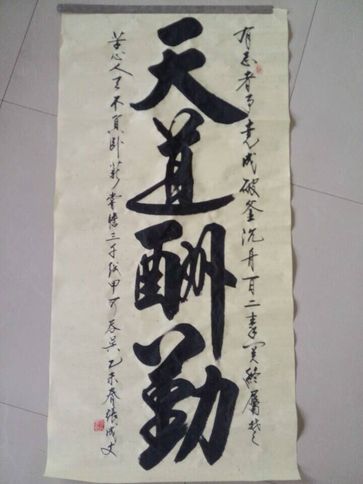 有志者事竟成破釜沉舟百二秦关終屬楚
天道酬勤
苦心人天不負卧薪嘗膽三千越甲可吞吴乙未春